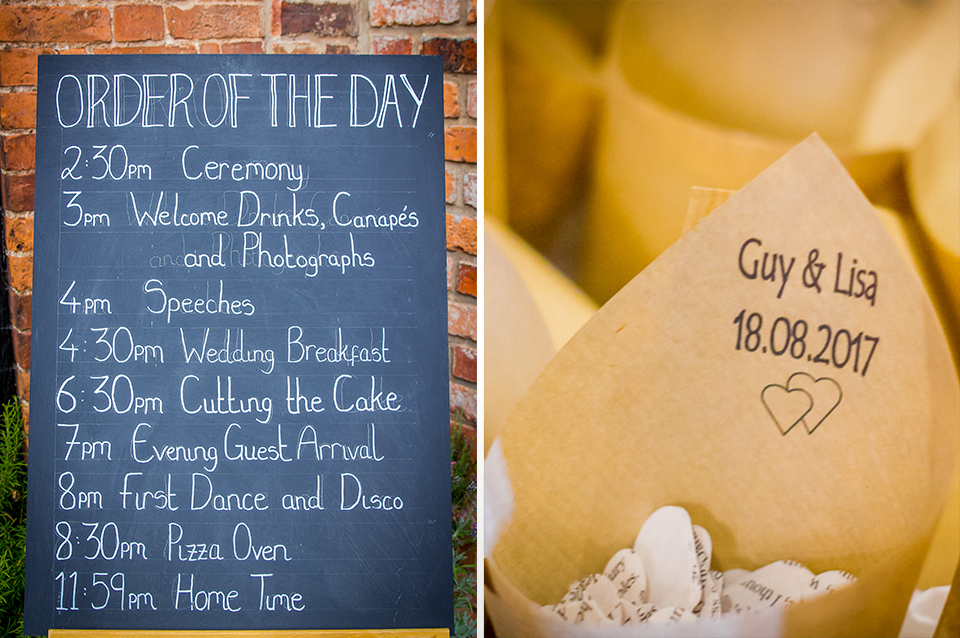 ORDER OF THE DAY
2:30pm Ceremony
3pm Welcome Drinks, Canapés
and Photographs
4pm Speeches
4:30pm Wedding Breakfast
6:30pm Cutting the Cake
7pm Evening Guest Arrival
8pm First Dance and Disco
8:30pm Pizza Oven
11:59pm Home Time
Guy & Lisa
18.08.2017